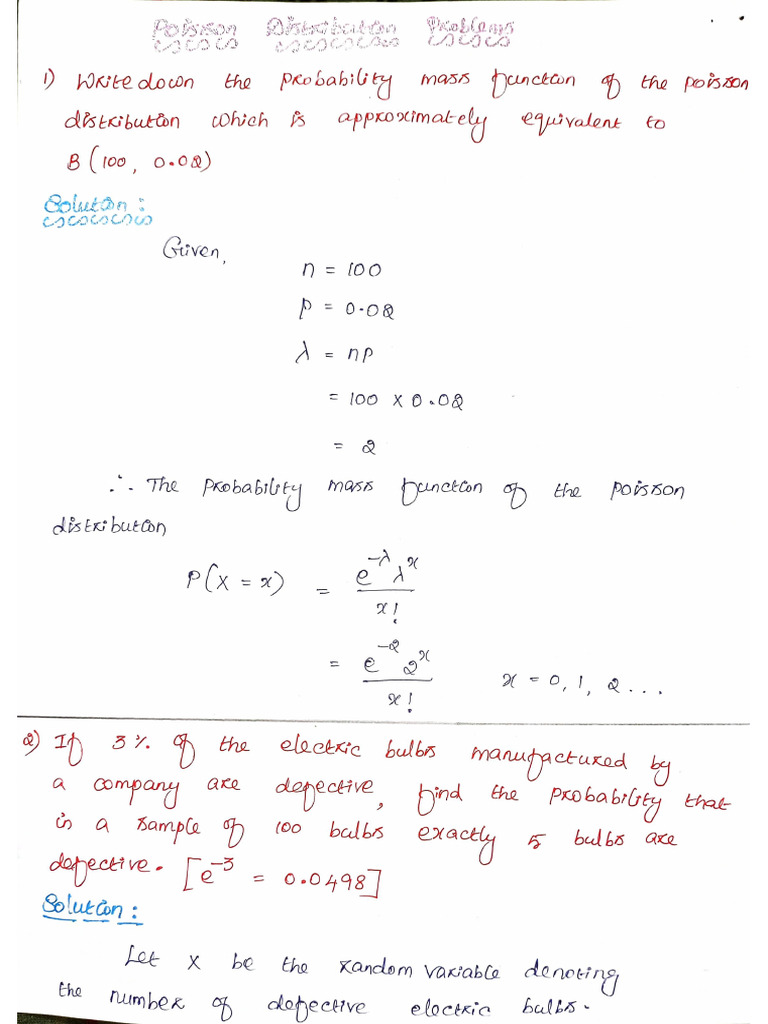 Poisson Distribution Problems
1) Write down the probability mass function of the poisson
distribution which is approximately equivalent to
B (100, 0.02)
Solution :
Given,
n = 100
P = 0.02
λ = np
= 100 x 0.02
= 2
∴ The probability mass function of the poisson
distribution
P(X = x) = e^-λ λ^x / x!
= e^-2 2^x / x!    x = 0, 1, 2 ...
2) If 3% of the electric bulbs manufactured by
a company are defective, find the probability that
is a sample of 100 bulbs exactly 5 bulbs are
defective. [e^-3 = 0.0498]
Solution :
Let X be the random variable denoting
the number of defective electric bulbs.